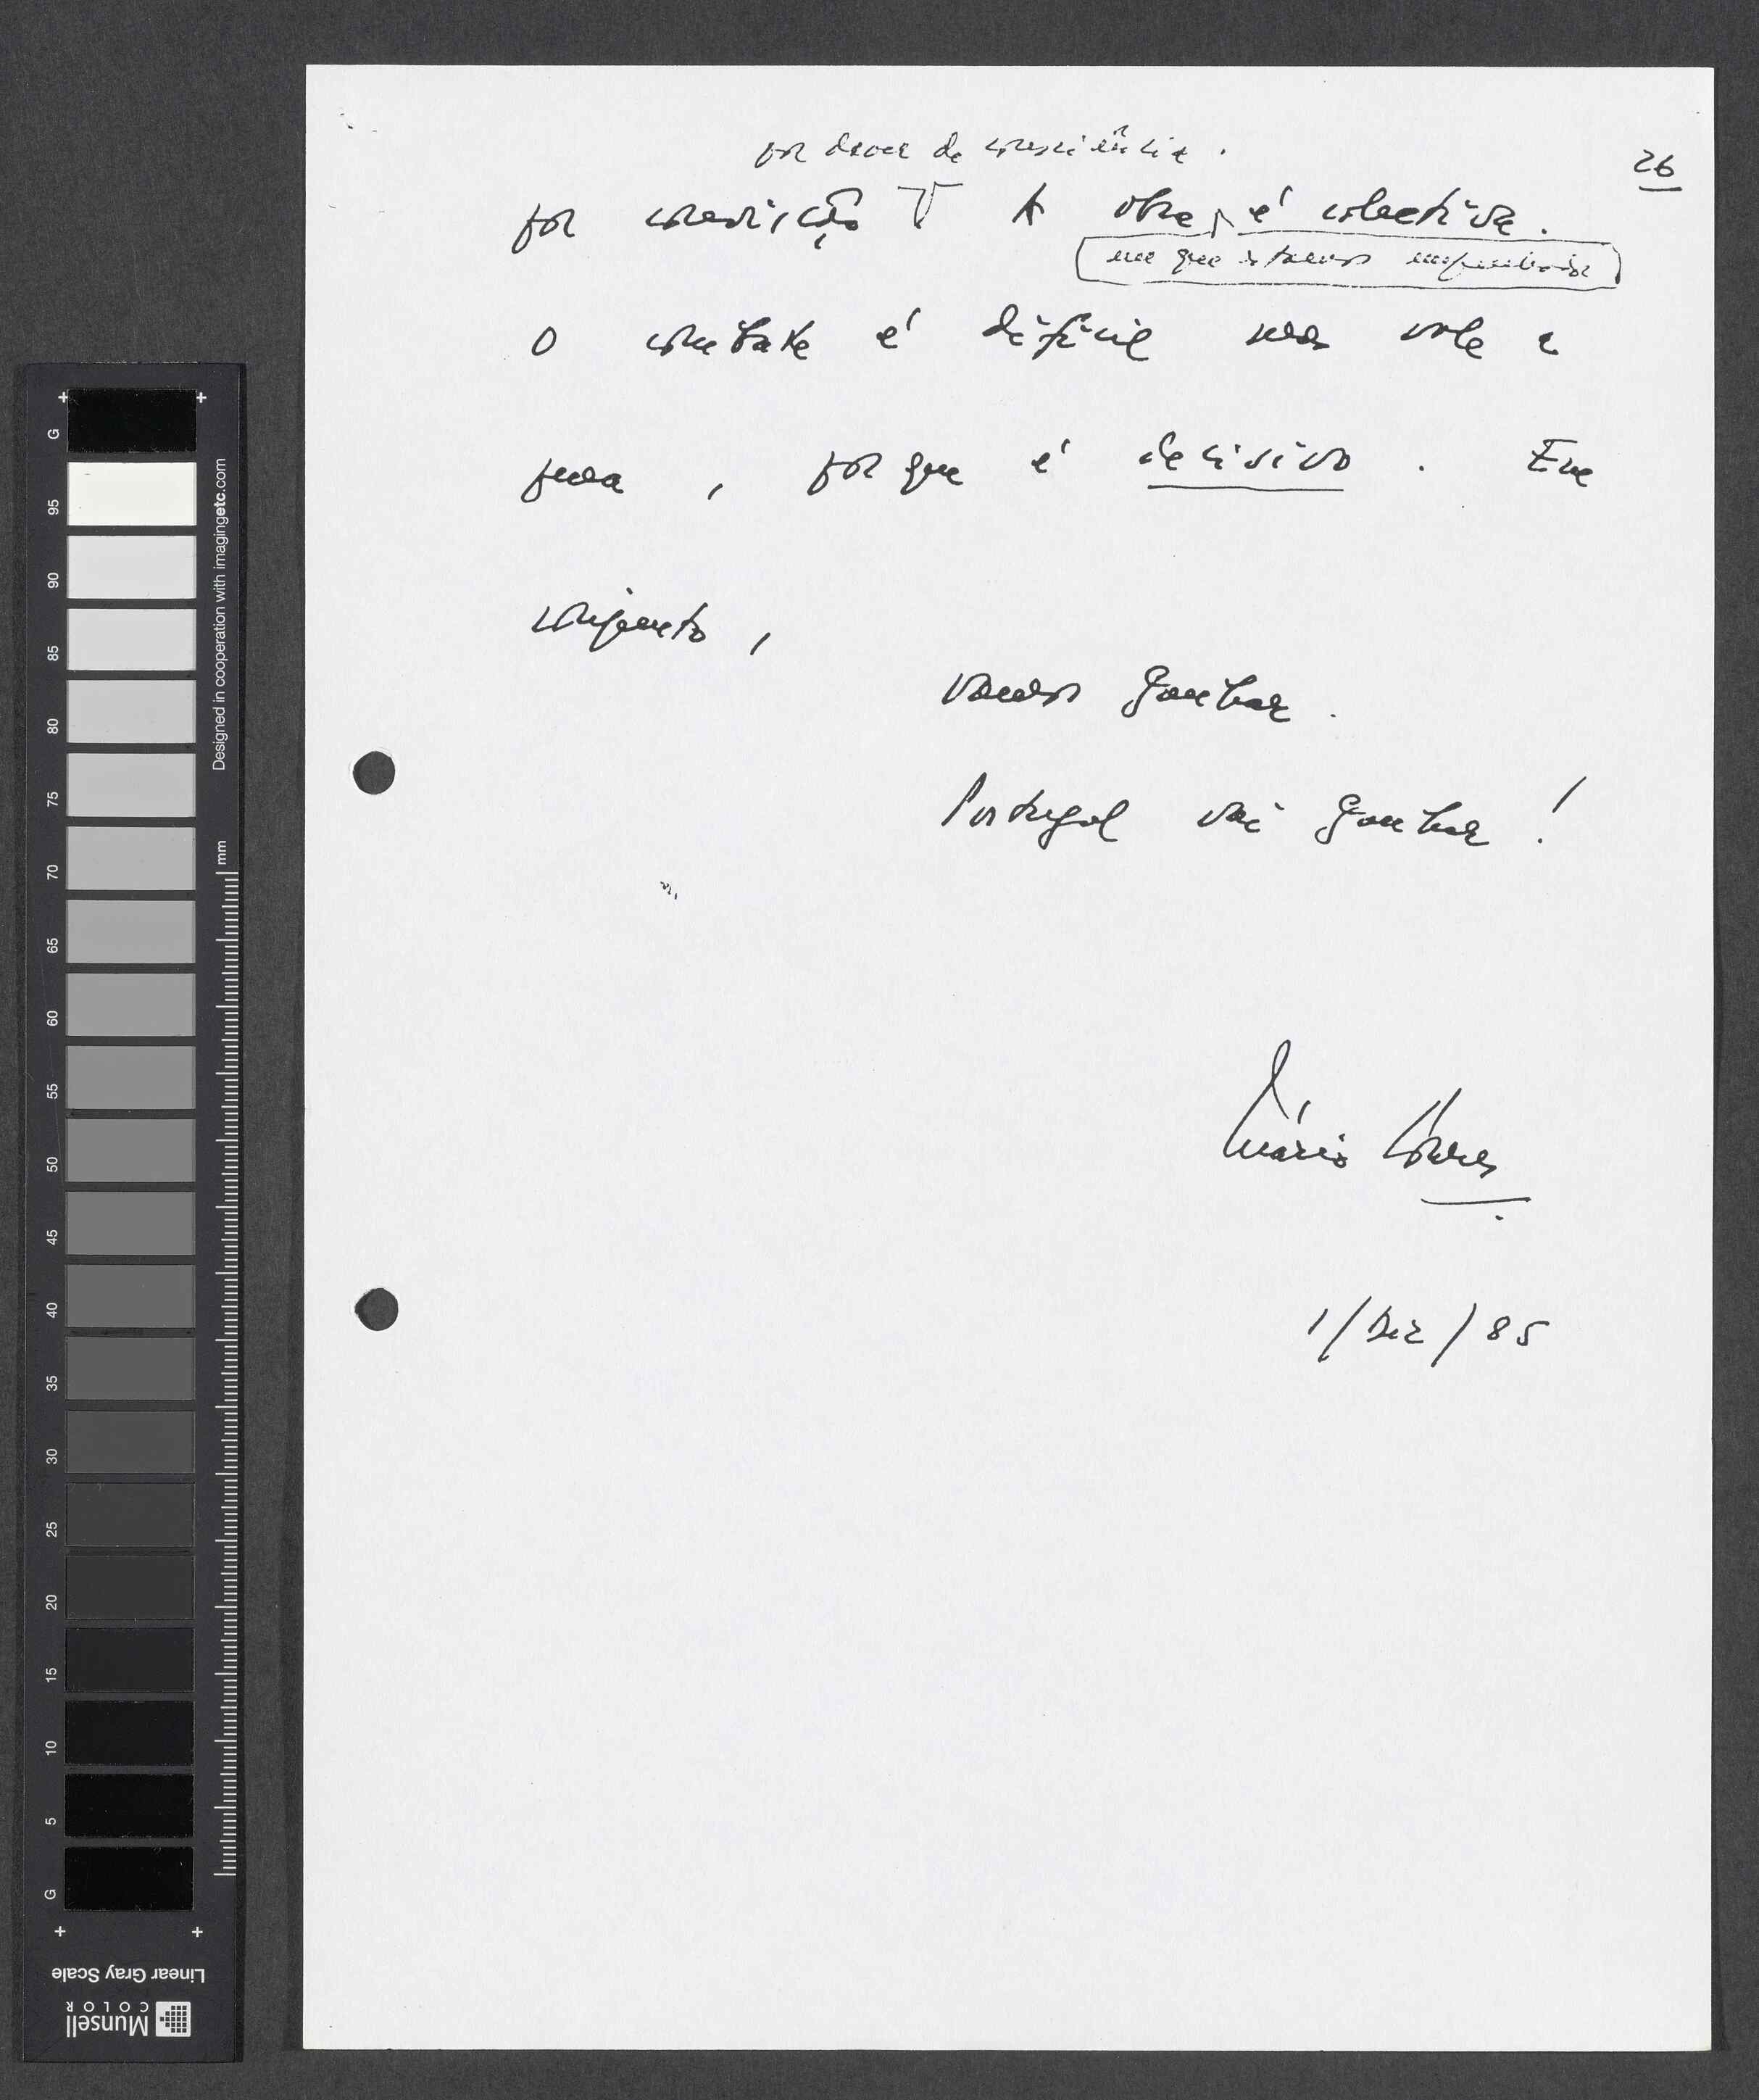 por dever de consciência.
26
por convicção A obra é colectiva.
em que estamos empenhados
O combate é difícil mas vale a
pena, porque é decisivo. Em
conjunto,
vamos ganhar.
Portugal vai ganhar!
Mário Soares
1/Dez/85
G
95
90
85
80
75
70
65
60
55
50
45
40
35
30
25
20
15
10
5
G
Designed in cooperation with imagingetc.com
mm
Linear Gray Scale
Munsell
COLOR